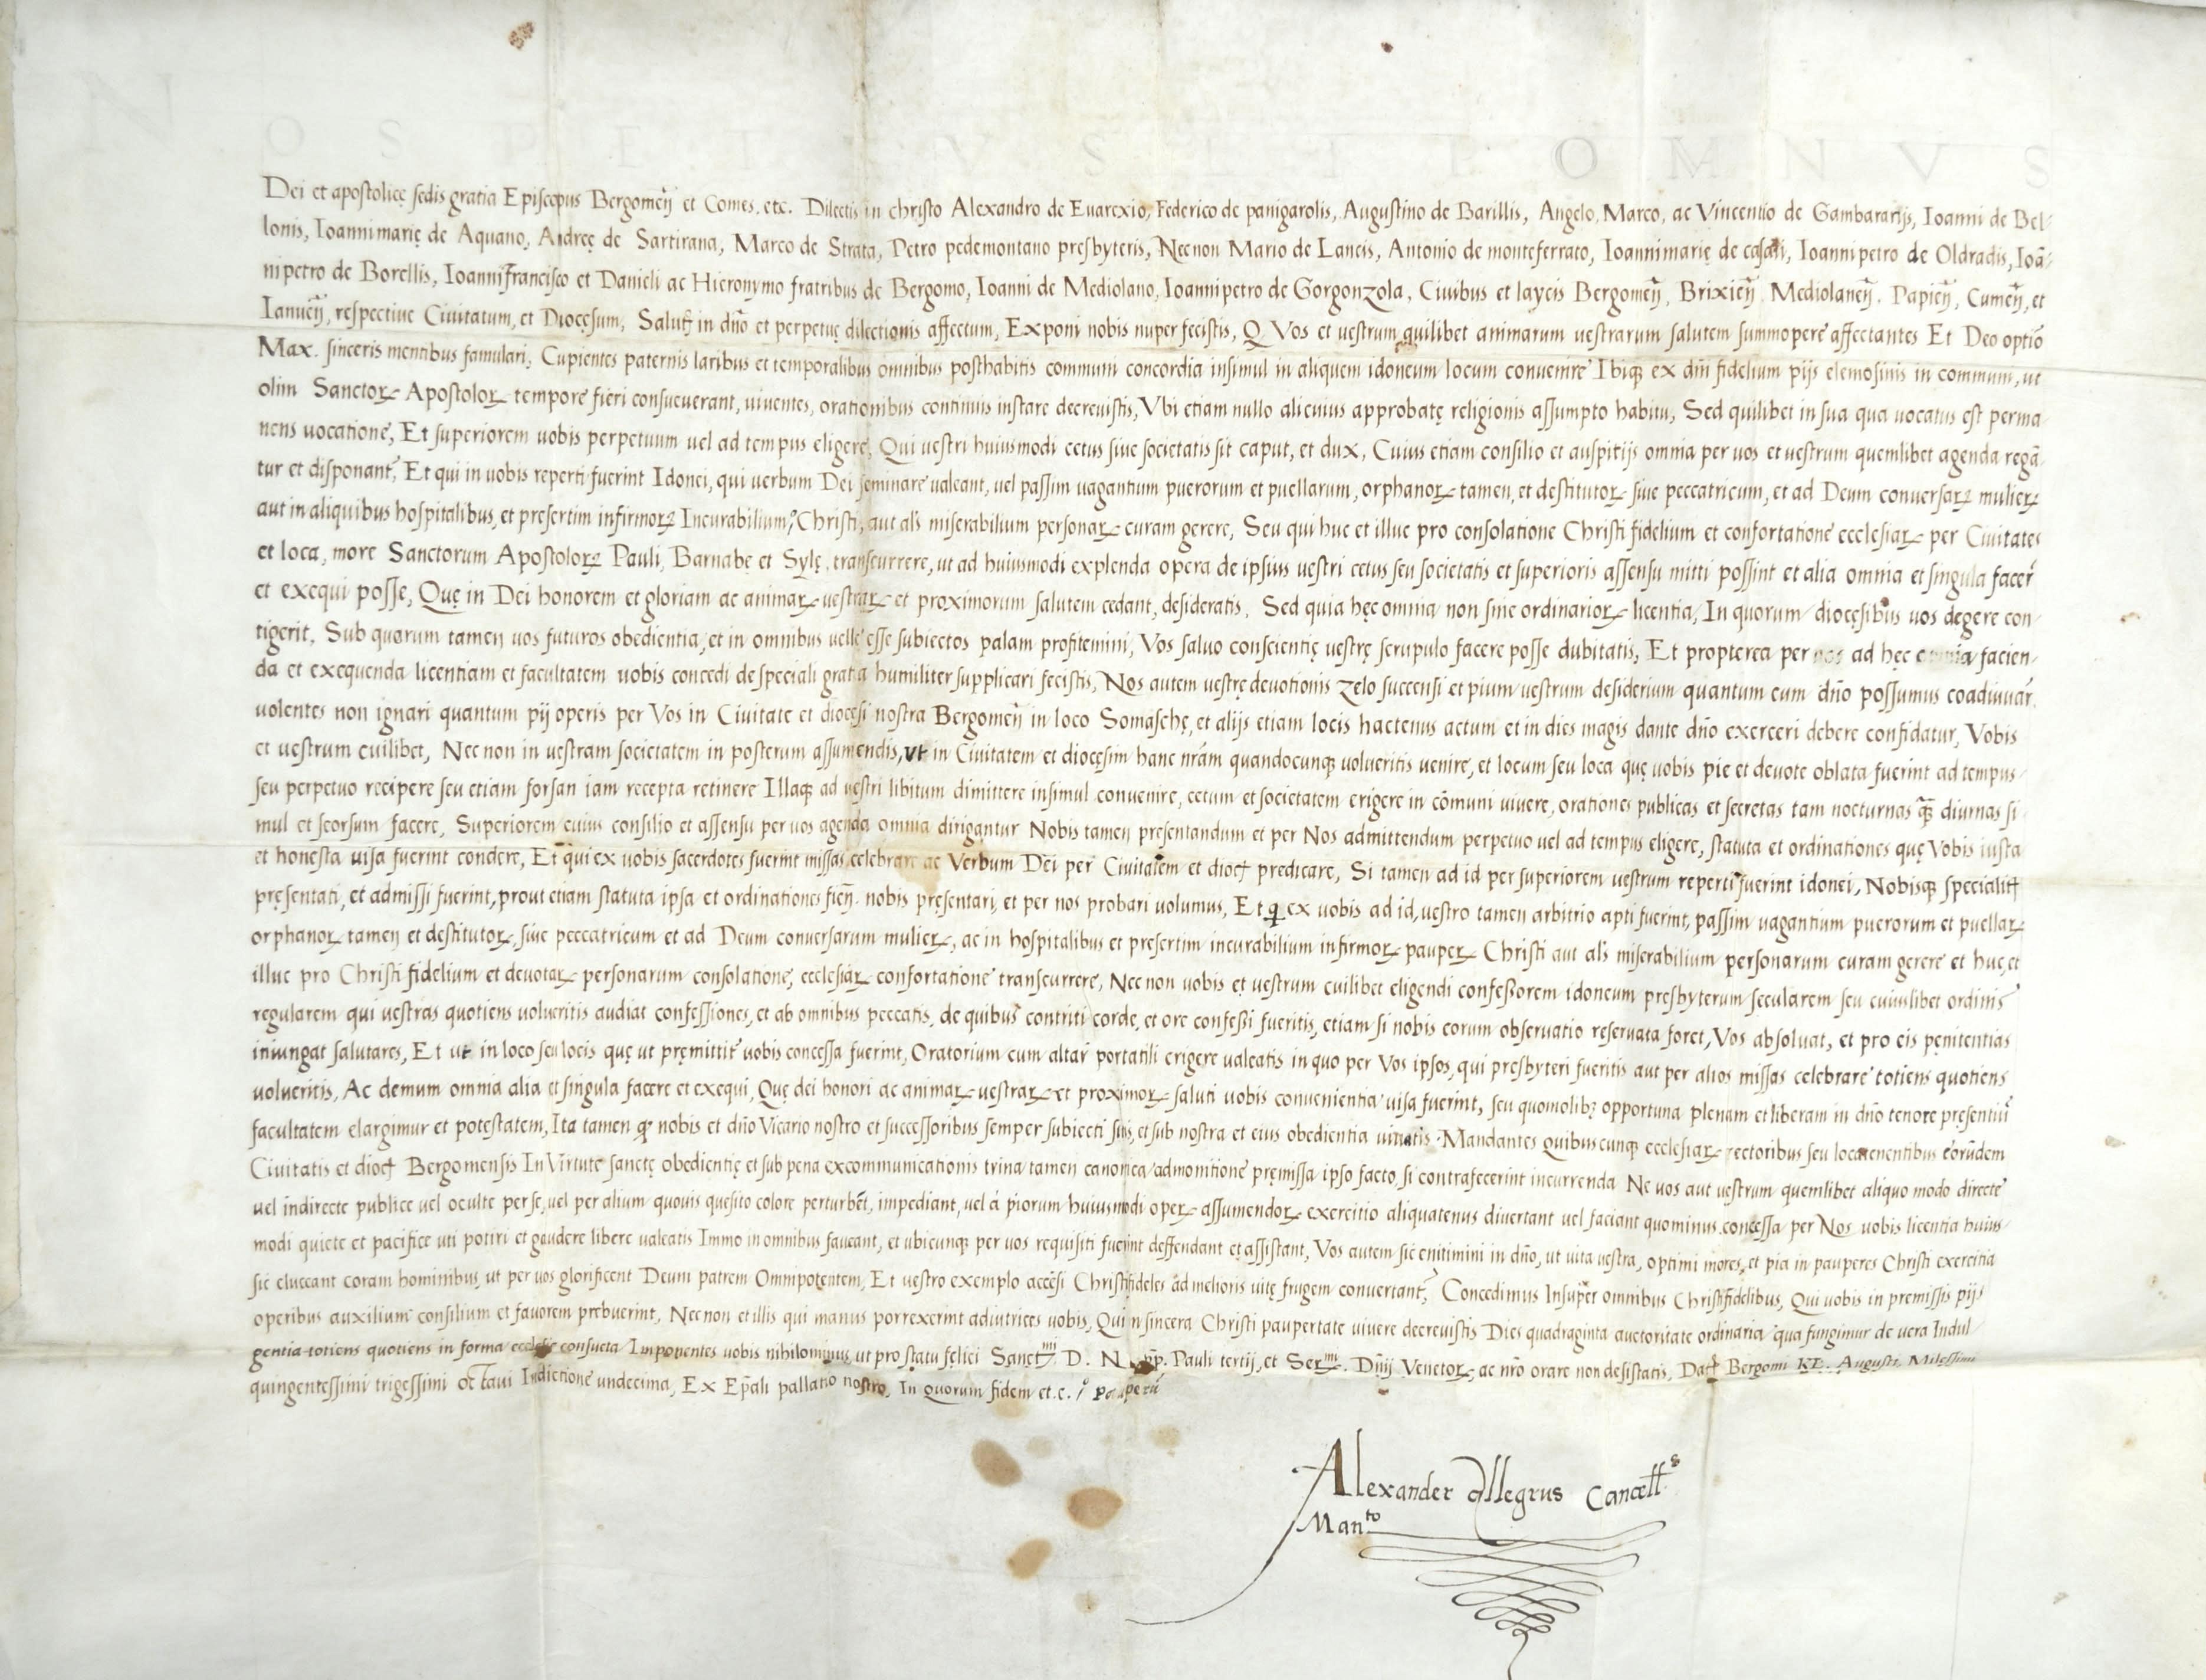 NOS PETRUS LIPOMNVS
Dei et apostolicę sedis gratia Episcopus Bergomeñ et Comes. etc. Dilectis in christo Alexandro de Euarexio, Federico de panigarolis, Augustino de Barillis, Angelo, Marco, ac Vincentio de Gambararijs, Ioanni de Bel-
lonis, Ioannimarię de Aquano, Andreę de Sartirana, Marco de Strata, Petro pedemontano presbyteris, Necnon Mario de Lancis, Antonio de monteferrato, Ioannimarię de casali, Ioannipetro de Oldradis, Ioã-
nipetro de Borellis, Ioannifrancisco et Danieli ac Hieronymo fratribus de Bergomo, Ioanni de Mediolano, Ioannipetro de Gorgonzola, Ciuibus et laycis Bergomeñ, Brixieñ, Mediolaneñ, Papieñ, Cumeñ, et
Ianueñ, respectiue Ciuitatum, et Diocęsum, Salutẽ in dño et perpetuę dilectionis affectum, Exponi nobis nuper fecistis, Q Vos et uestrum quilibet animarum uestrarum salutem summopere affectantes Et Deo optiõ
Max. sinceris mentibus famulari, Cupientes paternis laribus et temporalibus omnibus posthabitis communi concordia insimul in aliquem idoneum locum conuenire Ibiq; ex dñi fidelium pijs elemosinis in communi, ut
olim Sanctoꝝ Apostoloꝝ tempore fieri consueuerant, uiuentes, orationibus continuis instare decreuistis, Vbi etiam nullo alicuius approbatę religionis assumpto habitu, Sed quilibet in sua qua uocatus est perma-
nens uocatione, Et superiorem uobis perpetuum uel ad tempus eligere, Qui uestri huiusmodi cetus siue societatis sit caput, et dux, Cuius etiam consilio et auspitijs omnia per uos et uestrum quemlibet agenda regã-
tur et disponant, Et qui in uobis reperti fuerint Idonei, qui uerbum Dei seminare ualeant, uel passim uagantium puerorum et puellarum, orphanoꝝ tamen, et destitutoꝝ siue peccatricum, et ad Deum conuersaꝝ mulieꝝ
aut in aliquibus hospitalibus, et presertim infirmoꝝ Incurabilium, Christi, aut als miserabilium personaꝝ curam gerere, Seu qui huc et illuc pro consolatione Christi fidelium et confortatione ecclesiaꝝ per Ciuitates
et loca, more Sanctorum Apostoloꝝ Pauli, Barnabę et Sylę, transcurrere, ut ad huiusmodi explenda opera de ipsius uestri cetus seu societatis et superioris assensu mitti possint et alia omnia et singula facer̃
et exequi posse, Quę in Dei honorem et gloriam ac animaꝝ uestraꝝ et proximorum salutem cedant, desideratis. Sed quia hęc omnia non sine ordinarioꝝ licentia, In quorum diocęsibus uos degere con-
tigerit, Sub quorum tamen uos futuros obedientia, et in omnibus uelle esse subiectos palam profitemini, Vos saluo conscientię uestrę scrupulo facere posse dubitatis, Et propterea per nos ad hęc omnia facien-
da et exequenda licentiam et facultatem uobis concedi de speciali gratia humiliter supplicari fecistis, Nos autem uestrę deuotionis zelo succensi et pium uestrum desiderium quantum cum dño possumus coadiuuar̃
uolentes non ignari quantum pij operis per Vos in Ciuitate et diocęsi nostra Bergomeñ in loco Somaschę, et alijs etiam locis hactenus actum et in dies magis dante dño exerceri debere confidatur, Vobis
et uestrum cuilibet, Nec non in uestram societatem in posterum assumendis, Vt in Ciuitatem et diocęsim hanc nrãm quandocunq; uolueritis uenire, et locum seu loca quę uobis pie et deuote oblata fuerint ad tempus
seu perpetuo recipere seu etiam forsan iam recepta retinere Illaq; ad uestri libitum dimittere insimul conuenire, cetum et societatem erigere in cõmuni uiuere, orationes publicas et secretas tam nocturnas q̃ diurnas si-
mul et seorsum facere, Superiorem cuius consilio et assensu per uos agenda omnia dirigantur Nobis tamen presentandum et per Nos admittendum perpetuo uel ad tempus eligere, statuta et ordinationes quę Vobis iusta
et honesta uisa fuerint condere, Et qui ex uobis sacerdotes fuerint missas celebrare ac Verbum Dei per Ciuitatem et dioc̃ predicare, Si tamen ad id per superiorem uestrum reperti fuerint idonei, Nobisq; specialit̃
pręsentati, et admissi fuerint, prout etiam statuta ipsa et ordinationes fieñ nobis pręsentari, et per nos probari uolumus, Et qui ex uobis ad id, uestro tamen arbitrio apti fuerint, passim uagantium puerorum et puellaꝝ
orphanoꝝ tamen et destitutoꝝ, siue peccatricum et ad Deum conuersarum mulieꝝ, ac in hospitalibus et presertim incurabilium infirmoꝝ paupeꝝ Christi aut als miserabilium personarum curam gerere et huc, et
illuc pro Christi fidelium et deuotaꝝ personarum consolatione, ecclesiaꝝ confortatione transcurrere, Nec non uobis et uestrum cuilibet eligendi confessorem idoneum presbyterum secularem seu cuiuslibet ordinis
regularem qui uestras quotiens uolueritis audiat confessiones, et ab omnibus peccatis, de quibus contriti corde, et ore confessi fueritis, etiam si nobis eorum obseruatio reseruata foret, Vos absoluat, et pro eis pęnitentias
iniungat salutares, Et ut in loco seu locis quę ut pręmittit̃ uobis concessa fuerint, Oratorium cum altar̃ portatili erigere ualeatis in quo per Vos ipsos, qui presbyteri fueritis aut per alios missas celebrare totiens quotiens
uolueritis, Ac demum omnia alia et singula facere et exequi, Quę dei honori ac animaꝝ uestraꝝ et proximoꝝ saluti uobis conuenientia uisa fuerint, seu quomolibꝫ opportuna plenam et liberam in dño tenore pręsentiũ
facultatem elargimur et potestatem, Ita tamen q̃ nobis et dño Vicario nostro et successoribus semper subiecti sitis, et sub nostra et eius obedientia uiuatis. Mandantes quibuscunq; ecclesiaꝝ rectoribus seu locatenentibus eorũdem
Ciuitatis et dioc̃ Bergomensis In Virtute sanctę obedientię et sub pena excommunicationis trina tamen canonica admonitione pręmissa ipso facto, si contrafecerint incurrenda Ne uos aut uestrum quemlibet aliquo modo directe
uel indirecte publice uel oculte per se, uel per alium quouis quesito colore perturbẽt, impediant, uel á piorum huiusmodi opeꝝ assumendoꝝ exercitio aliquatenus diuertant uel faciant quominus concessa per Nos uobis licentia huius-
modi quiete et pacifice uti potiri et gaudere libere ualeatis Immo in omnibus faueant, et ubicunq; per uos requisiti fuerint deffendant et assistant, Vos autem sic enitimini in dño, ut uita uestra, optimi mores, et pia in pauperes Christi exercitia
sic eluceant coram hominibus, ut per uos glorificent Deum patrem Omnipotentem, Et uestro exemplo accẽsi Christifideles ad melioris uitę frugem conuertant̃, Concedimus Insuper omnibus Christifidelibus, Qui uobis in premissis pijs
operibus auxilium consilium et fauorem prebuerint, Nec non et illis qui manus porrexerint adiutrices uobis, Qui in sincera Christi paupertate uiuere decreuistis Dies quadraginta auctoritate ordinaria qua fungimur de uera Indul-
gentia totiens quotiens in forma ecclesie consueta Imponentes uobis nihilominus, ut pro statu felici Sanct.mi D. N. pp. Pauli tertij, et Ser.mi Dñij Venetoꝝ, ac nrõ orare non desistatis, Dat̃ Bergomi Kl. Augusti, Milessimi
quingentessimi trigessimi octaui Indictione undecima, Ex Ep̃ali pallatio nostro, In quorum fidem et.c.
Alexander Allegrus Cancell.s
Man.to